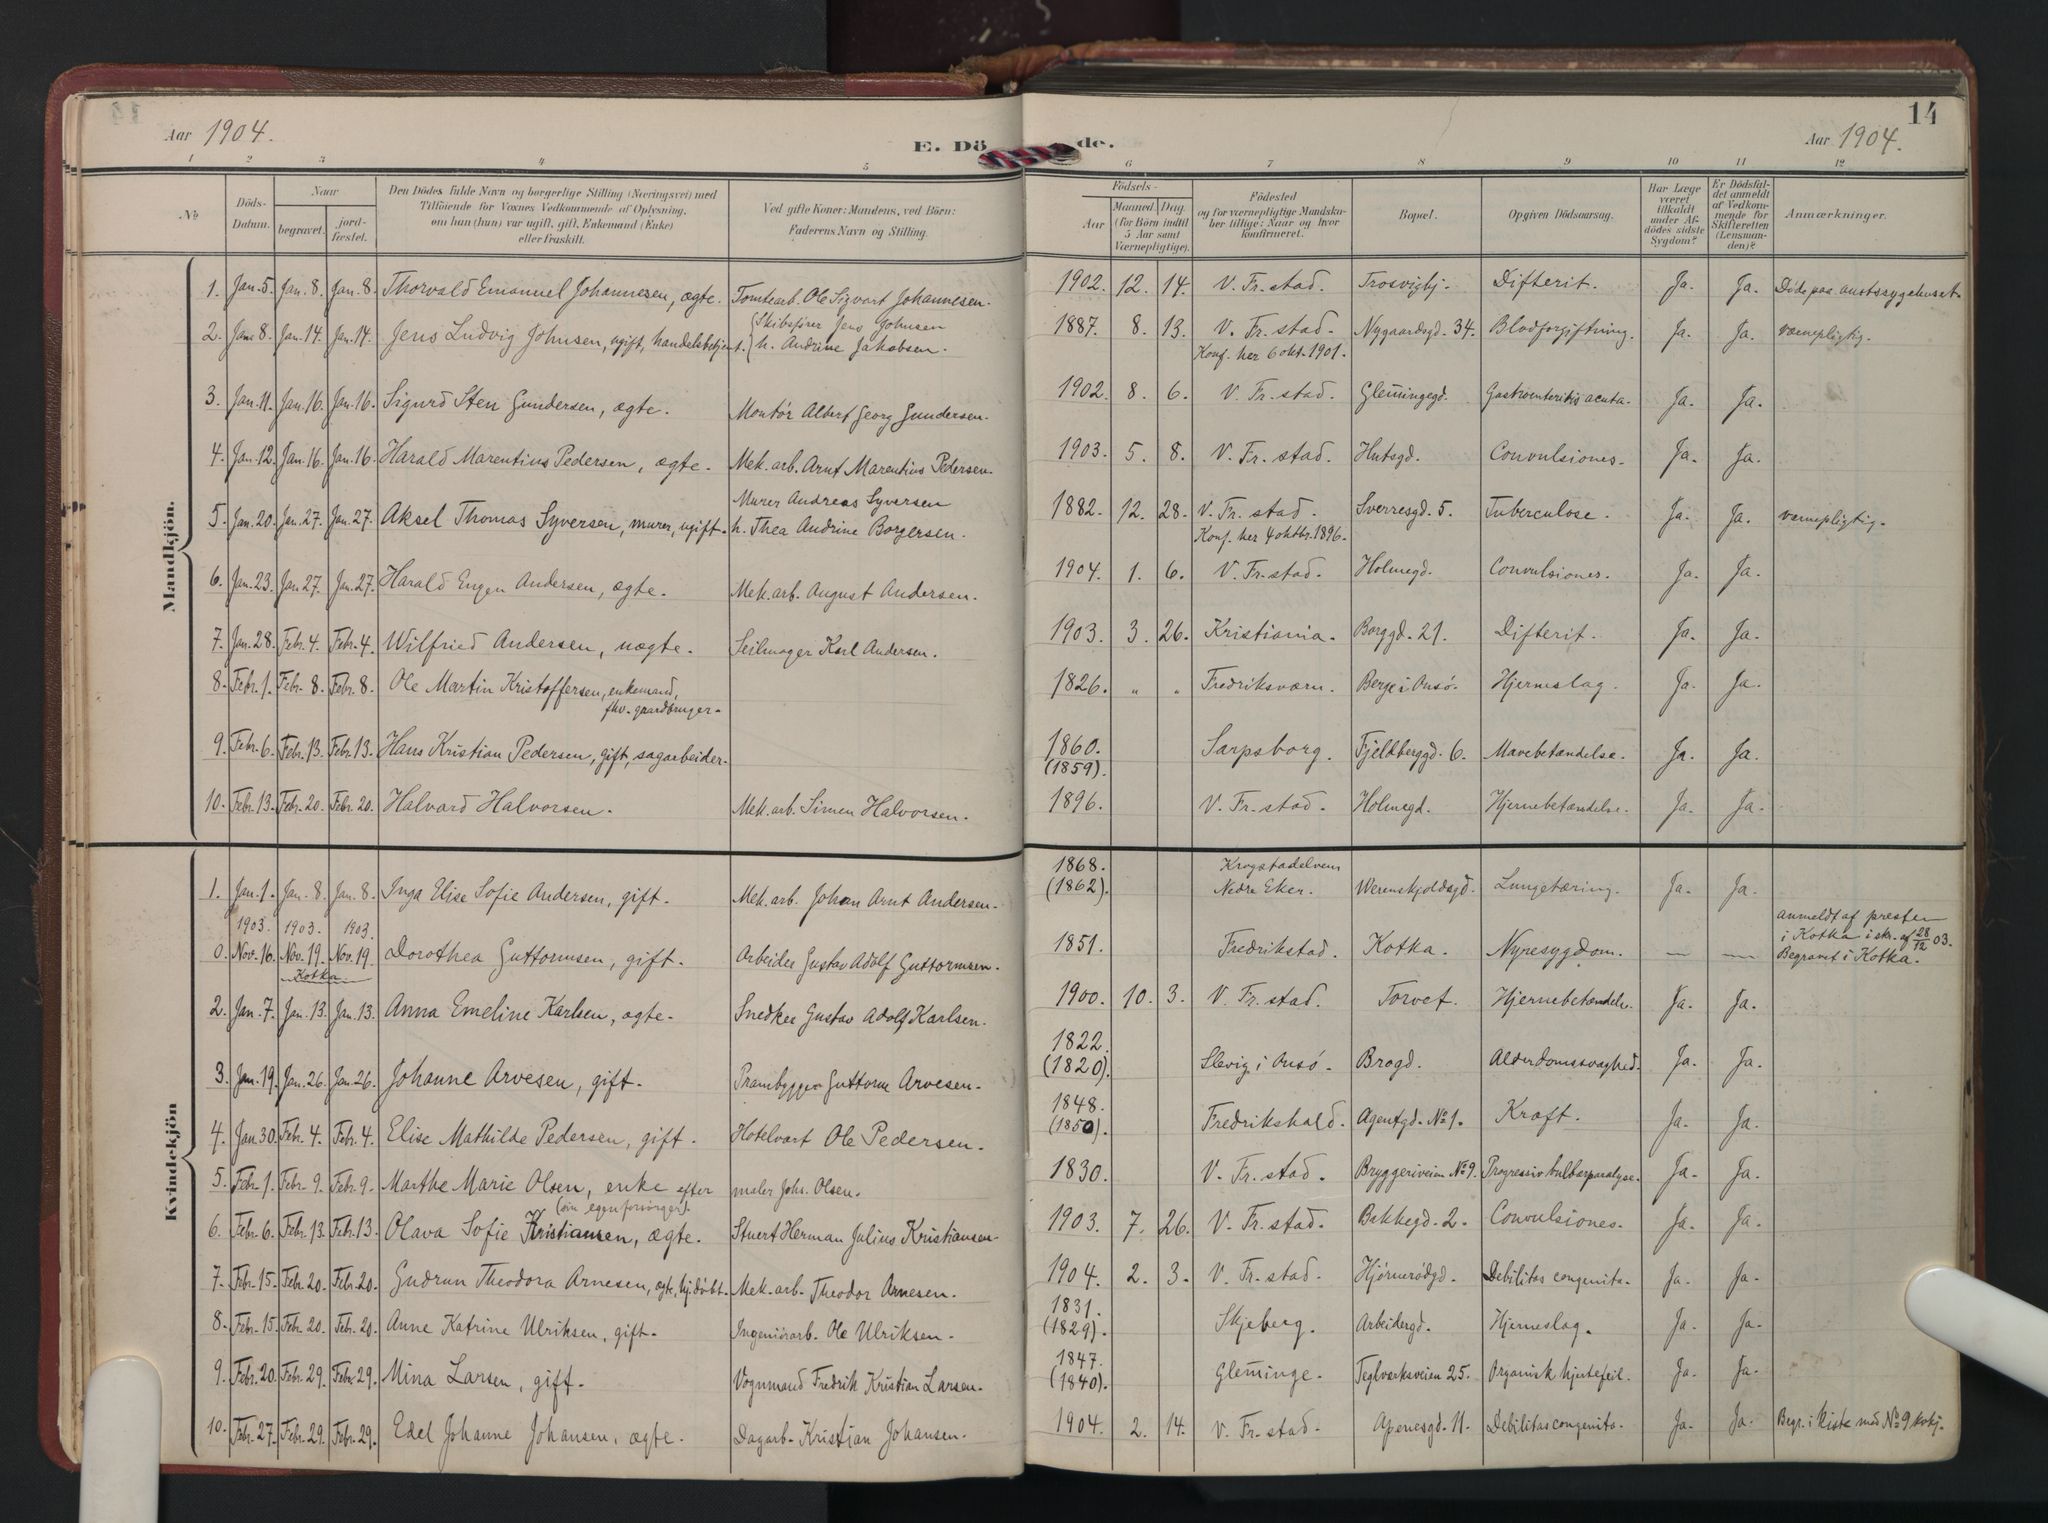 14
Aar 1904.
E. Dö de.
Aar 1904.
1 2 3 4 5 6 7 8 9 10 11 12
№
Döds-Datum.
Naar
begravet.
jord-fæstet.
Den Dödes fulde Navn og borgerlige Stilling (Næringsvei) med
Tilföiende for Voxnes Vedkommende af Oplysning,
om han (hun) var ugift, gift, Enkemand (Enke)
eller fraskilt.
Ved gifte Koner: Mandens, ved Börn:
Faderens Navn og Stilling.
Födsels-
Aar
Maaned. Dag.
(for Börn indtil
5 Aar samt
Værnepligtige).
Födested
og for værnepligtige Mandska-
ber tillige: Naar og hvor
konfirmeret.
Bopæl.
Opgiven Dödsaarsag.
Har Læge
været
tilkaldt
under Af-
dödes sidste
Sygdom?
Er Dödsfal-
det anmeldt
af Vedkom-
mende for
Skifteretten
(Lensman-
den)?
Anmærkninger.
Mandkjön.
1. Jan. 5. Jan. 8. Jan. 8. Thorvald Emanuel Johannesen, ægte. Tomtearb. Ole Sigvart Johannesen. 1902. 12. 14. V. Fr. stad. Trosviglj. Difterit. Ja. Ja. Döde paa sygehuset.
2. Jan. 8. Jan. 14. Jan. 14. Jens Ludvig Johnsen, ugift, handelsbetjent. Skibsförer Jens Johnsen h. Andrine Jakobsen. 1887. 8. 13. V. Fr. stad. Konf. her 6 okt. 1901. Nygaardsgd. 34. Blodforgiftning. Ja. Ja. værnepligtig.
3. Jan. 11. Jan. 16. Jan. 16. Sigurd Sten Gundersen, ægte. Montör Albert Georg Gundersen. 1902. 8. 6. V. Fr. stad. Glemingegd. Gastroenteritis acuta. Ja. Ja.
4. Jan. 12. Jan. 16. Jan. 16. Harald Marentius Pedersen, ægte. Mek. arb. Arnt Marentius Pedersen. 1903. 5. 8. V. Fr. stad. Hutsgd. Convulsiones. Ja. Ja.
5. Jan. 20. Jan. 27. Jan. 27. Aksel Thomas Syversen, murer, ugift. Murer Andreas Syversen h. Thea Andrine Borgersen. 1882. 12. 28. V. Fr. stad. Konf. her 4 oktbr. 1896. Sverresgd. 5. Tuberculose. Ja. Ja. værnepligtig.
6. Jan. 23. Jan 27. Jan. 27. Harald Eugen Andersen, ægte. Mek. arb. August Andersen. 1904. 1. 6. V. Fr. stad. Holmegd. Convulsiones. Ja. Ja.
7. Jan. 28. Feb. 4. Feb. 4. Wilfried Andersen, uægte. Seilmager Karl Andersen. 1903. 3. 26. Kristiania. Borggd. 21. Difterit. Ja. Ja.
8. Febr. 1. Febr. 8. Febr. 8. Ole Martin Kristoffersen, enkemand, fhv. gaardbruger. 1826. „ „ Fredriksværn. Berge i Onsö. Hjerneslag. Ja. Ja.
9. Febr. 6. Febr. 13. Febr. 13. Hans Kristian Pedersen, gift, sagarbeider. 1860. (1859). Sarpsborg. Fjeldberggd. 6. Mavebetændelse. Ja. Ja.
10. Febr. 13. Febr. 20. Febr. 20. Halvard Halvorsen. Mek. arb. Simen Halvorsen. 1896. V. Fr. stad. Holmegd. Hjernebetændelse. Ja. Ja.
Kvindekjön
1. Jan. 1. Jan. 8. Jan. 8. Inga Elise Sofie Andersen, gift. Mek. arb. Johan Arnt Andersen. 1868. (1862). Krogstadelven Nedre Eker. Werenskjoldsgd. Lungetæring. Ja. Ja.
1903. 1903. 1903.
0. Nov. 16. Nov. 19. Nov. 19. Kotka Dorothea Guttormsen, gift. Arbeider Gustav Adolf Guttormsen. 1851. Fredrikstad. Kotka. Nyresygdom. — — anmeldt af presten i Kotka i skr. af 28/12 03. Begravet i Kotka.
2. Jan. 7. Jan. 13. Jan. 13. Anna Emeline Karlsen, ægte. Snedker Gustav Adolf Karlsen. 1900. 10. 3. V. Fr. stad. Torvet. Hjernebetændelse. Ja. Ja.
3. Jan. 19. Jan. 26. Jan. 26. Johanne Arvesen, gift. Prambygger Guttorm Arvesen. 1822. (1820). Slevig i Onsö. Brogd. Alderdomssvaghed. Ja. Ja.
4. Jan. 30. Feb. 4. Feb. 4. Elise Mathilde Pedersen, gift. Hotelvært Ole Pedersen. 1848. (1850). Fredrikshald. Agentgd. № 1. Kræft. Ja. Ja.
5. Febr. 1. Febr. 9. Febr. 9. Marthe Marie Olsen, enke efter maler Johs. Olsen. (sin egen forsörger). 1830. V. Fr. stad. Bryggeriveien № 9. Progressiv bulbærparalyse. Ja. Ja.
6. Febr. 6. Febr. 13. Febr. 13. Olava Sofie Kristiansen, ægte. Stuert Herman Julius Kristiansen. 1903. 7. 26. V. Fr. stad. Bakkegd. 2. Convulsiones. Ja. Ja.
7. Febr. 15. Febr. 20. Febr. 20. Gudrun Theodora Arnesen, ægte, hj. döbt. Mek. arb. Theodor Arnesen. 1904. 2. 3. V. Fr. stad. Hjörnerödgd. Debilitas congenita. Ja. Ja.
8. Febr. 15. Febr. 20. Febr. 20. Anne Katrine Ulriksen, gift. Ingeniörarb. Ole Ulriksen. 1831. (1829). Skjeberg. Arbeidergd. Hjerneslag. Ja. Ja.
9. Febr. 20. Febr. 29. Febr. 29. Mina Larsen, gift. Vognmand Fredrik Kristian Larsen. 1847. (1840). Gleminge. Teglværksveien 25. Organisk hjertefeil. Ja. Ja.
10. Febr. 27. Febr. 29. Febr. 29. Edel Johanne Johansen, ægte. Dagarb. Kristian Johansen. 1904. 2. 14. V. Fr. stad. Apenesgd. 11. Debilitas congenita. Ja. Ja. Begr. i kiste med № 9 kvkj.